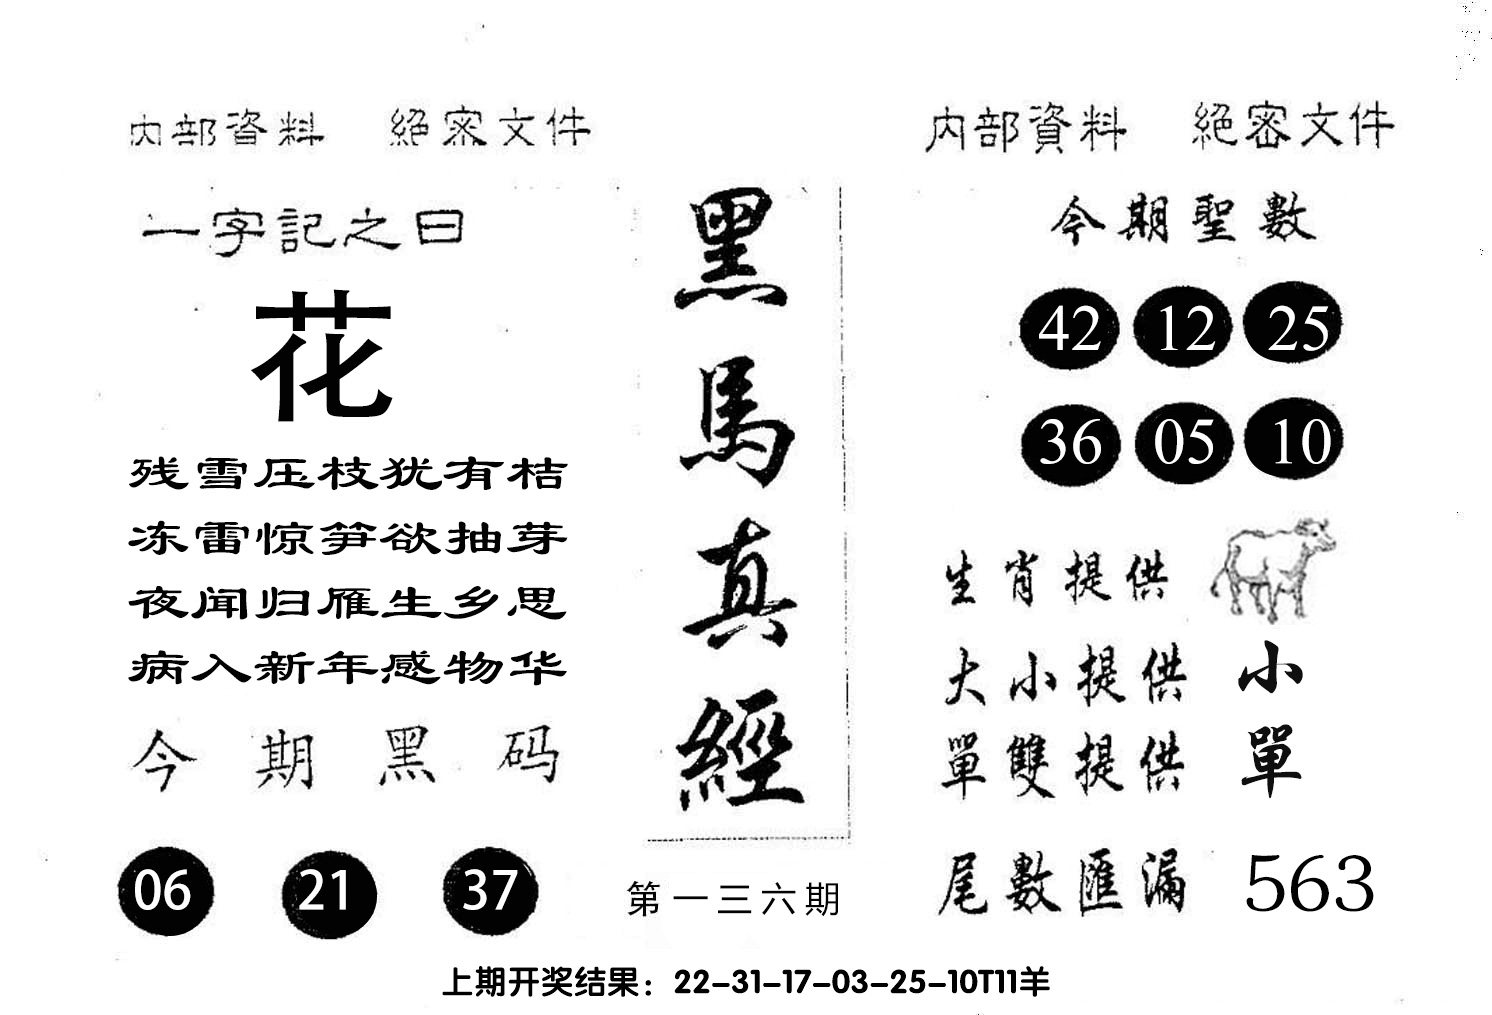 内部資料 絕密文件
一字記之曰
花
残雪压枝犹有桔
冻雷惊笋欲抽芽
夜闻归雁生乡思
病入新年感物华
今期黑码
06 21 37
黑馬真經
第一三六期
内部資料 絕密文件
今期聖數
42 12 25
36 05 10
生肖提供
大小提供 小
單雙提供 單
尾數匯漏 563
上期开奖结果：22-31-17-03-25-10T11羊